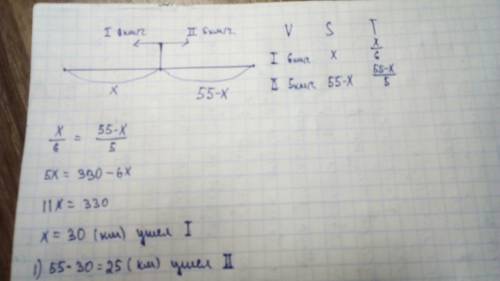 I 6км/ч II 5км/ч
x 55-x
V S T
I 6км/ч x x/6
II 5км/ч 55-x 55-x/5
x/6 = 55-x/5
5x = 330 - 6x
11x = 330
x = 30 (км) ушел I
1) 55 - 30 = 25 (км) ушел II